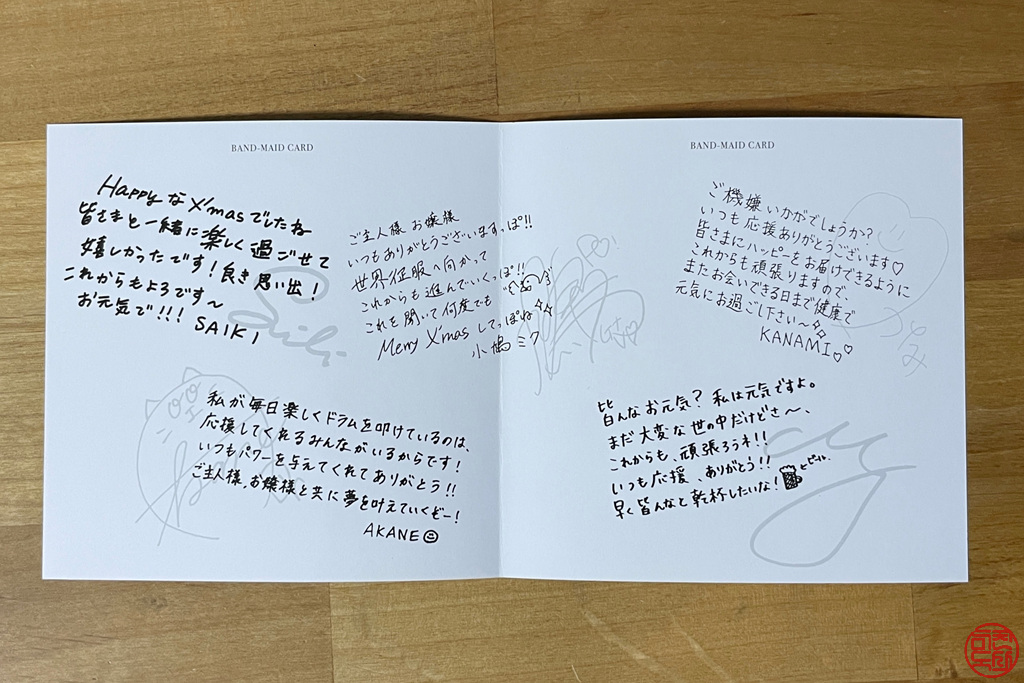 BAND-MAID CARD
HappyなX'masでしたね
皆さまと一緒に楽しく過ごせて
嬉しかったです!良き思い出!
これからもよろです〜
お元気で!!! SAIKI
ご主人様 お嬢様
いつもありがとうございます、っぽ!!
世界征服へ向かって
これからも進んでいくっぽ!!
これを聞いて何度でも
Merry X'mas してっぽね
小鳩ミク
私が毎日楽しくドラムを叩けているのは、
応援してくれるみんながいるからです!
いつもパワーを与えてくれてありがとう!!
ご主人様、お嬢様と共に夢を叶えていくぞー!
AKANE
BAND-MAID CARD
ご機嫌いかがでしょうか?
いつも応援ありがとうございます♡
皆さまにハッピーをお届けできるように
これからも頑張りますので、
またお会いできる日まで健康で
元気にお過ご下さい〜
KANAMI♡♡
皆んなお元気? 私は元気ですよ。
まだ大変な世の中だけどさ〜、
これからも、頑張ろうネ!!
いつも応援、ありがとう!!
早く皆んなと乾杯したいな!
ビール